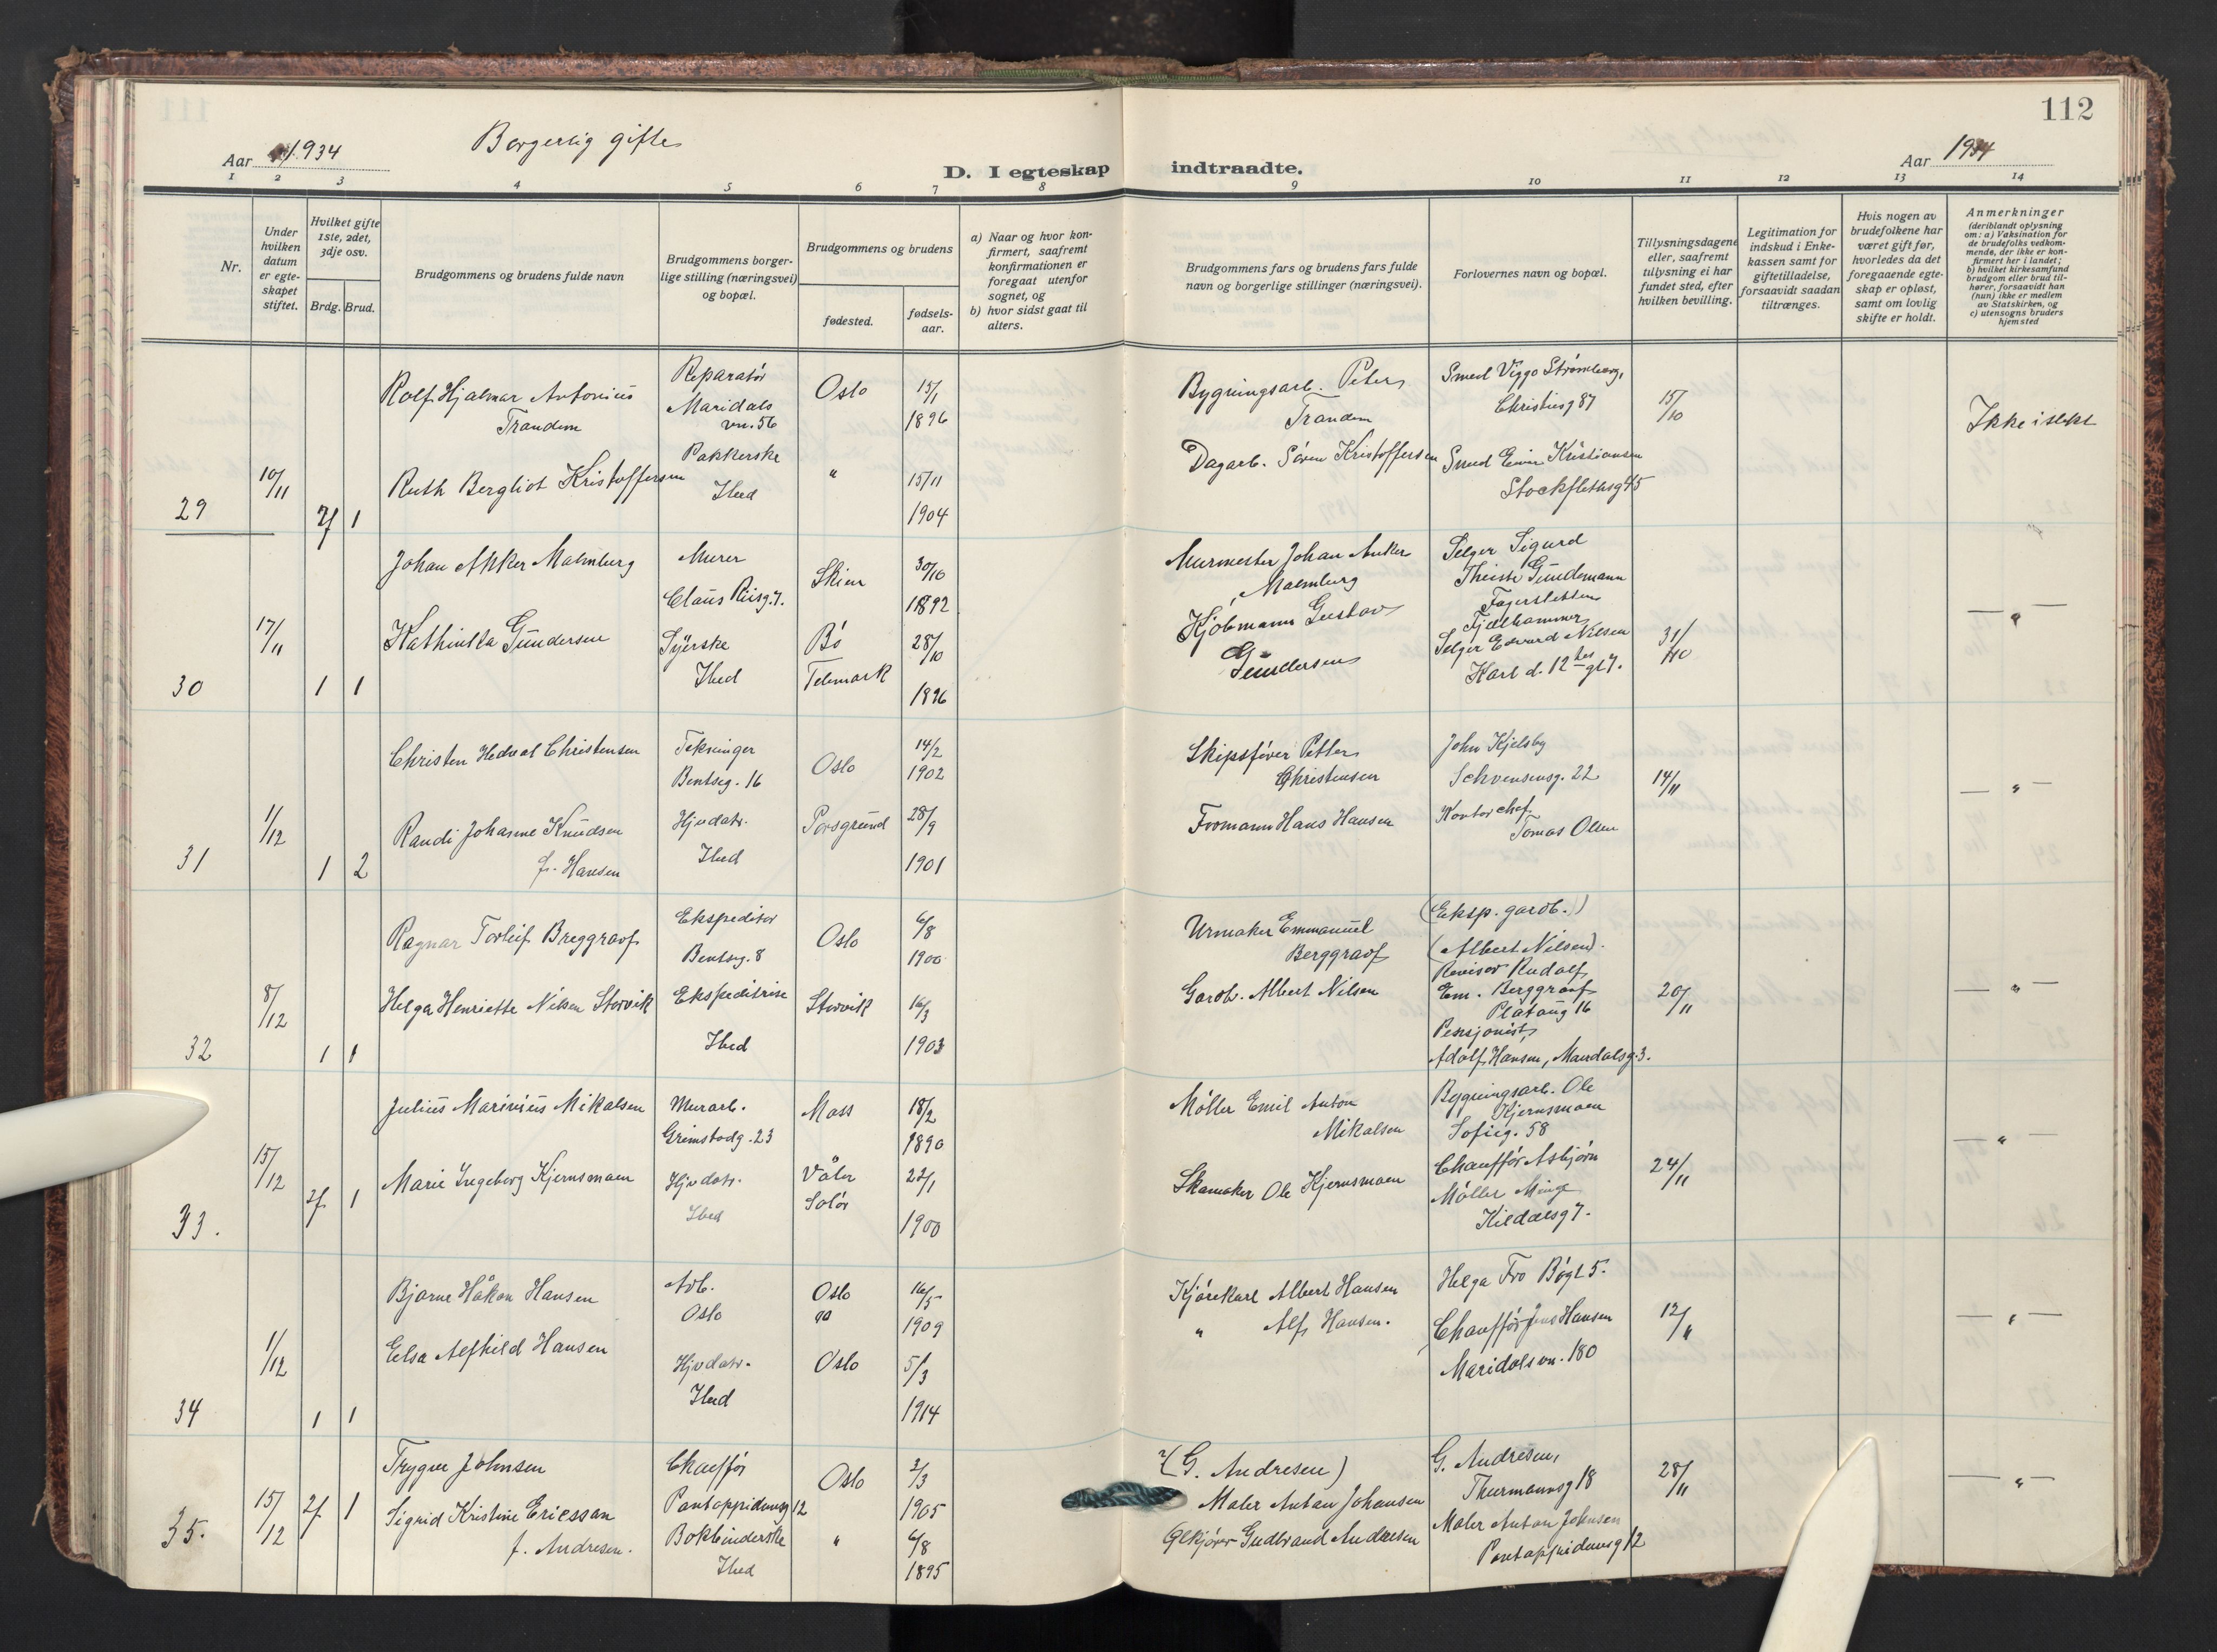 112
Aar 1934
Borgerlig gifte
D. I egteskap indtraadte.
Aar 1934
1 2 3 4 5 6 7 8 9 10 11 12 13 14
Nr.
Under hvilken datum er egteskapet stiftet.
Hvilket gifte 1ste, 2det, 3dje osv.
Brdg. Brud.
Brudgommens og brudens fulde navn
Brudgommens borgerlige stilling (næringsvei) og bopæl.
Brudgommens og brudens
fødested.
fødselsaar.
a) Naar og hvor konfirmert, saafremt konfirmationen er foregaat utenfor sognet, og
b) hvor sidst gaat til alters.
Brudgommens fars og brudens fars fulde navn og borgerlige stillinger (næringsvei).
Forlovernes navn og bopæl.
Tillysningsdagene eller, saafremt tillysning ei har fundet sted, efter hvilken bevilling.
Legitimation for indskud i Enkekassen samt for giftetilladelse, forsaavidt saadan tiltrænges.
Hvis nogen av brudefolkene har været gift før, hvorledes da det foregaaende egteskap er opløst, samt om lovlig skifte er holdt.
Anmerkninger (deriblandt oplysning om: a) Vaksination for de brudefolks vedkommende, der ikke er konfirmert her i landet; b) hvilket kirkesamfund brudgom eller brud tilhører, forsaavidt han (hun) ikke er medlem av Statskirken, og c) utensogns bruders hjemsted
29 10/11 2f 1
Rolf Hjalmar Antonius Trandem
Reparatör Maridalsvn. 56
Oslo 15/1 1896
Bygningsarb. Peter Trandem
Smed Viggo Strømberg, Christiesg 87
15/10
Ruth Bergliot Kristoffersen
Pakkerske Ibed
" 15/11 1904
Dagarb. Sören Kristoffersen
Smed Einar Kristiansen Stockflethsg 45
30 17/11 1 1
Johan Anker Malmburg
Murer Claus Riisg. 7.
Skien 30/10 1892
Murmester Johan Anker Malmburg
Selger Sigurd Theiste Gundemann Fagersletten Fjellhammer
31/10
Kathinka Gundersen
Syerske Ibed
Bö Telemark 28/10 1896
Kjöbmann Gustav Gundersen
Selger Edvard Nilsen Karl d. 12tes gt 7.
— " —
31 1/12 1 2
Christen Hedval Christensen
Bentseg. 16
Oslo 14/2 1902
Skipsförer Petter Christensen
John Kjelsby Schvensensg. 22
14/11
Randi Johanne Knudsen f. Hansen
Hjvdatr. Ibed
Porsgrund 28/9 1901
Hans Hansen
Kontorchef Tomas Olsen
— " —
32 8/12 1 1
Ragnar Torleif Breggraaf
Ekspeditör Bentseg. 8
Oslo 6/8 1900
Urmaker Emmanuel Berggraaf
(Eksp. garob.)
(Albert Nilsen).
Revisor Rudolf Em. Berggraaf Plataug 16
20/11
Helga Henriette Nilsen Storvik
Ekspeditrise Ibed
Storvik 16/3 1903
Garob. Albert Nilsen
Pensjonist, Adolf Hansen, Mandalsg. 3.
— " —
33. 15/12 2f 1
Julius Marinius Mikalsen
Murarb. Grimstadg. 23
Moss 18/2 1890
Möller Emil Anton Mikalsen
Bygningsarb. Ole Kjernsmoen Sofieg. 58
24/11
Marie Ingeborg Kjernsmoen
Hjvdatr. Ibed
Våler Solör 22/1 1900
Skomaker Ole Kjernsmoen
Chauffør Asbjörn Möller Minge Kildalsg 7.
— " —
34 1/12 1 1
Bjarne Håkon Hansen
Arb. Oslo
Oslo 16/5 1909
Kjörekarl Albert Hansen
Helga Fro Bögt 5.
12/11
Elsa Alfhild Hansen
Hjvdatr. Ibed
Oslo 5/3 1914
" Alf Hansen.
Chauffør Jens Hansen Maridalsvn. 180
— " —
35. 15/12 2f 1
Trygve Johnsen
Chaufför Pontoppidansg 12
Oslo 3/3 1905
(G. Andresen)
Maler Anton Johansen
G. Andresen, Thurmannsg 18
28/11
Sigrid Kristine Ericsson f. Andresen.
Bokbinderske Ibed
" 6/8 1895
Gudbrand Andresen
Maler Anton Johnsen Pontoppidansg 12
— " —